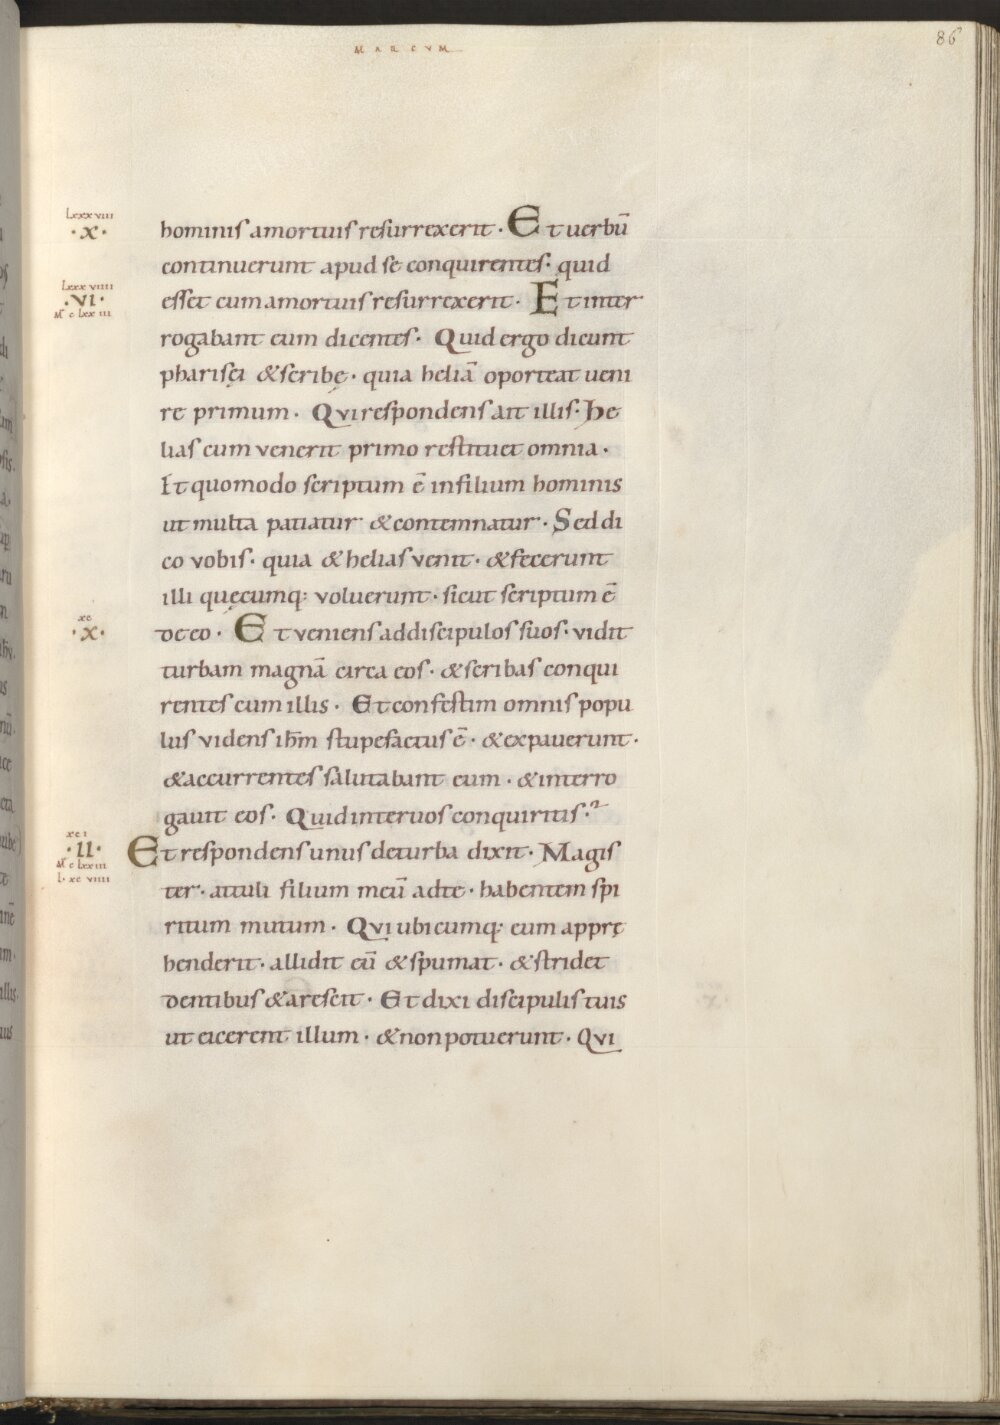 MARCUM
86
Lxxxviii
·x·
hominis amortuis resurrexerit· Et uerbū
continuerunt apud se conquirentes· quid
Lxxxviiii
·VI·
esset cum amortuis resurrexerit· Et inter
Mt clxxiii
rogabant eum dicentes· Quid ergo dicunt
pharisęi & scribę· quia heliā oporteat ueni
re primum· Qui respondens ait illis· He
lias cum venerit primo restituet omnia·
Et quomodo scriptum ē in filium hominis
ut multa patiatur & contemnatur· Sed di
co vobis· quia & helias venit· & fecerunt
illi quęcumq; voluerunt· sicut scriptum ē
xc
·x·
de eo· Et veniens ad discipulos suos· vidit
turbam magnā circa eos· & scribas conqui
rentes cum illis· Et confestim omnis popu
lus videns ihm̄ stupefactus ē· & expauerunt·
& accurrentes salutabant eum· & interro
gauit eos· Quid inter uos conquiritis·?
xci
·II·
Et respondens unus deturba dixit· Magis
Mt clxxiiii
L· xcviiii
ter· attuli filium meū adte· habentem spi
ritum mutum· Qui ubicumq; eum apprę
henderit· allidit eū & spumat· & stridet
dentibus & arescit· Et dixi discipulis tuis
ut eicerent illum· & non potuerunt· Qui